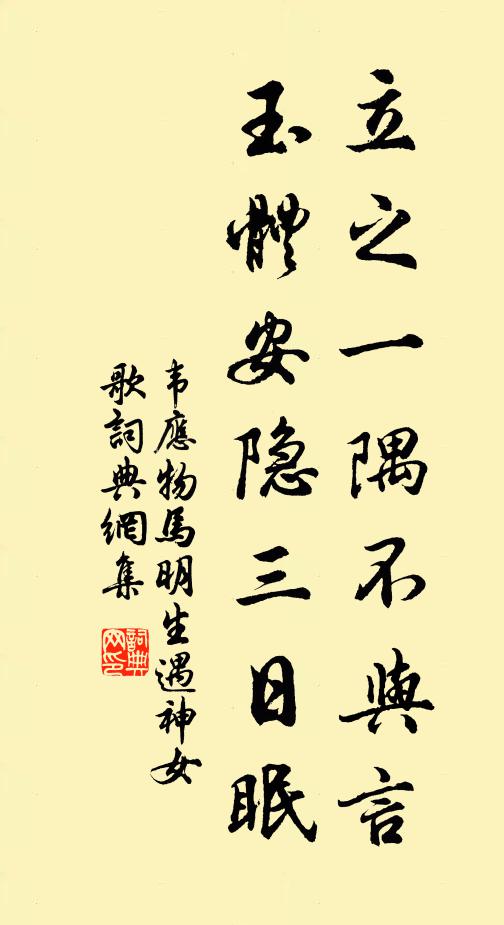 立之一隅不與言
玉體安隐三日眠
韦應物馬明生遇神女
歌詞典網集
詞典网印